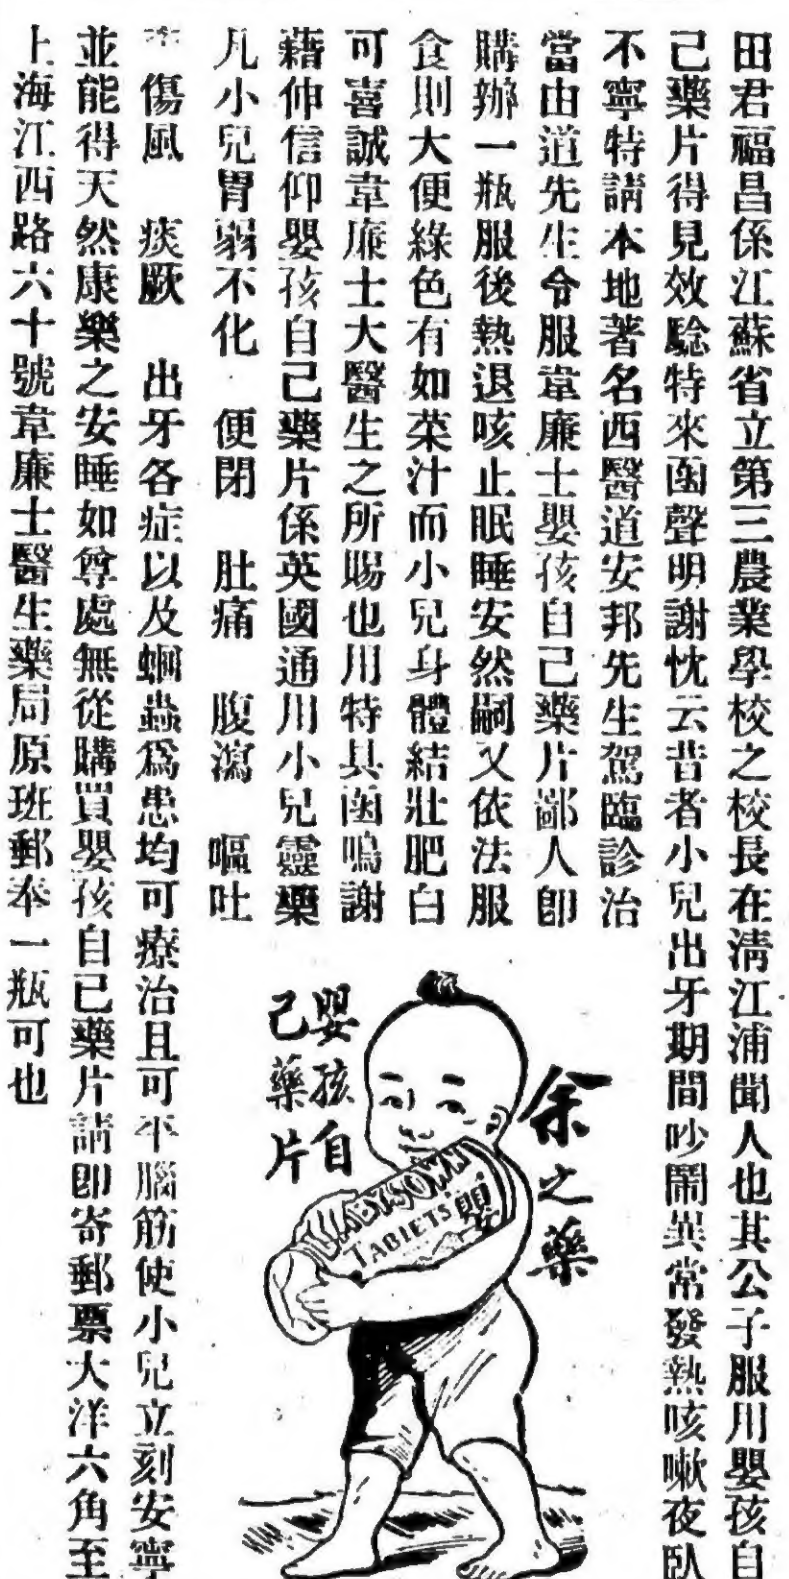 田君福昌係江蘇省立第三農業學校之校長在清江浦聞人也其公子服用嬰孩自
己藥片得見效驗特來函聲明謝忱云昔者小兒出牙期間吵鬧異常發熱咳嗽夜臥
不寧特請本地著名西醫道安邦先生駕臨診治
當由道先生令服韋廉士嬰孩自己藥片鄙人卽
購辦一瓶服後熱退咳止眠睡安然嗣又依法服
食則大便綠色有如菜汁而小兒身體結壯肥白
可喜誠韋廉士大醫生之所賜也用特具函鳴謝
藉伸信仰嬰孩自己藥片係英國通用小兒靈藥
凡小兒胃弱不化 便閉 肚痛 腹瀉 嘔吐
傷風 痰厥 出牙各症以及蛔蟲爲患均可療治且可平腦筋使小兒立刻安寧
並能得天然康樂之安睡如尊處無從購買嬰孩自己藥片請卽寄郵票大洋六角至
上海江西路六十號韋廉士醫生藥局原班郵奉一瓶可也
余之藥
嬰孩自
己藥片
BABY'S OWN
TABLETS
嬰